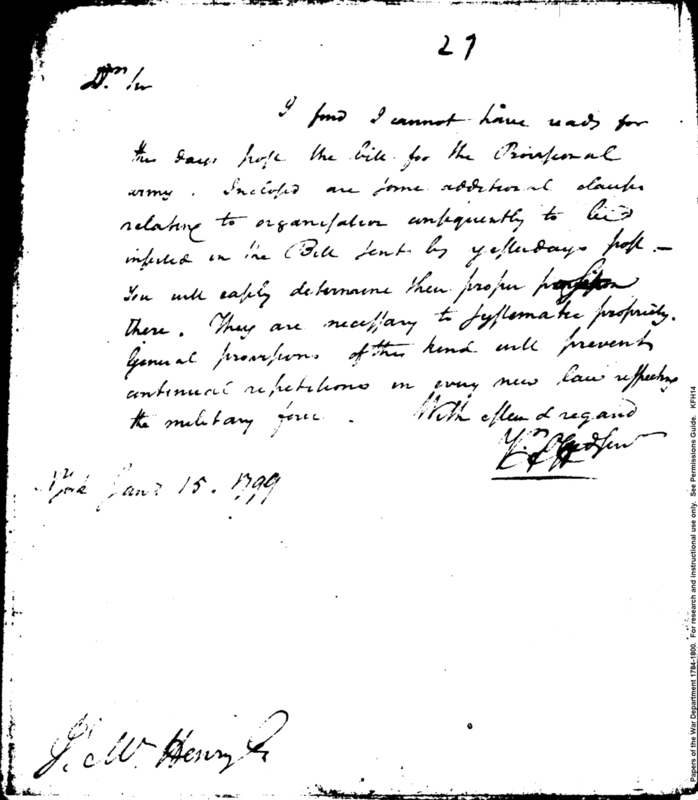 27
Dr. Sir
I find I cannot have ready for
this days post the bill for the Provisional
army. Inclosed are some additional clauses
relating to organisation consequently to be
inserted in the Bill sent by yesterdays post —
You will easily determine their proper
there. They are necessary to systematic propriety.
General provisions of this kind will prevent
continual repetitions in every new law respecting
the military force. With esteem & regard
Yr
N York Jany 15. 1799
Js. Mc. Henry Es
Papers of the War Department 1784-1800. For research and instructional use only. See Permissions Guide. KFH14